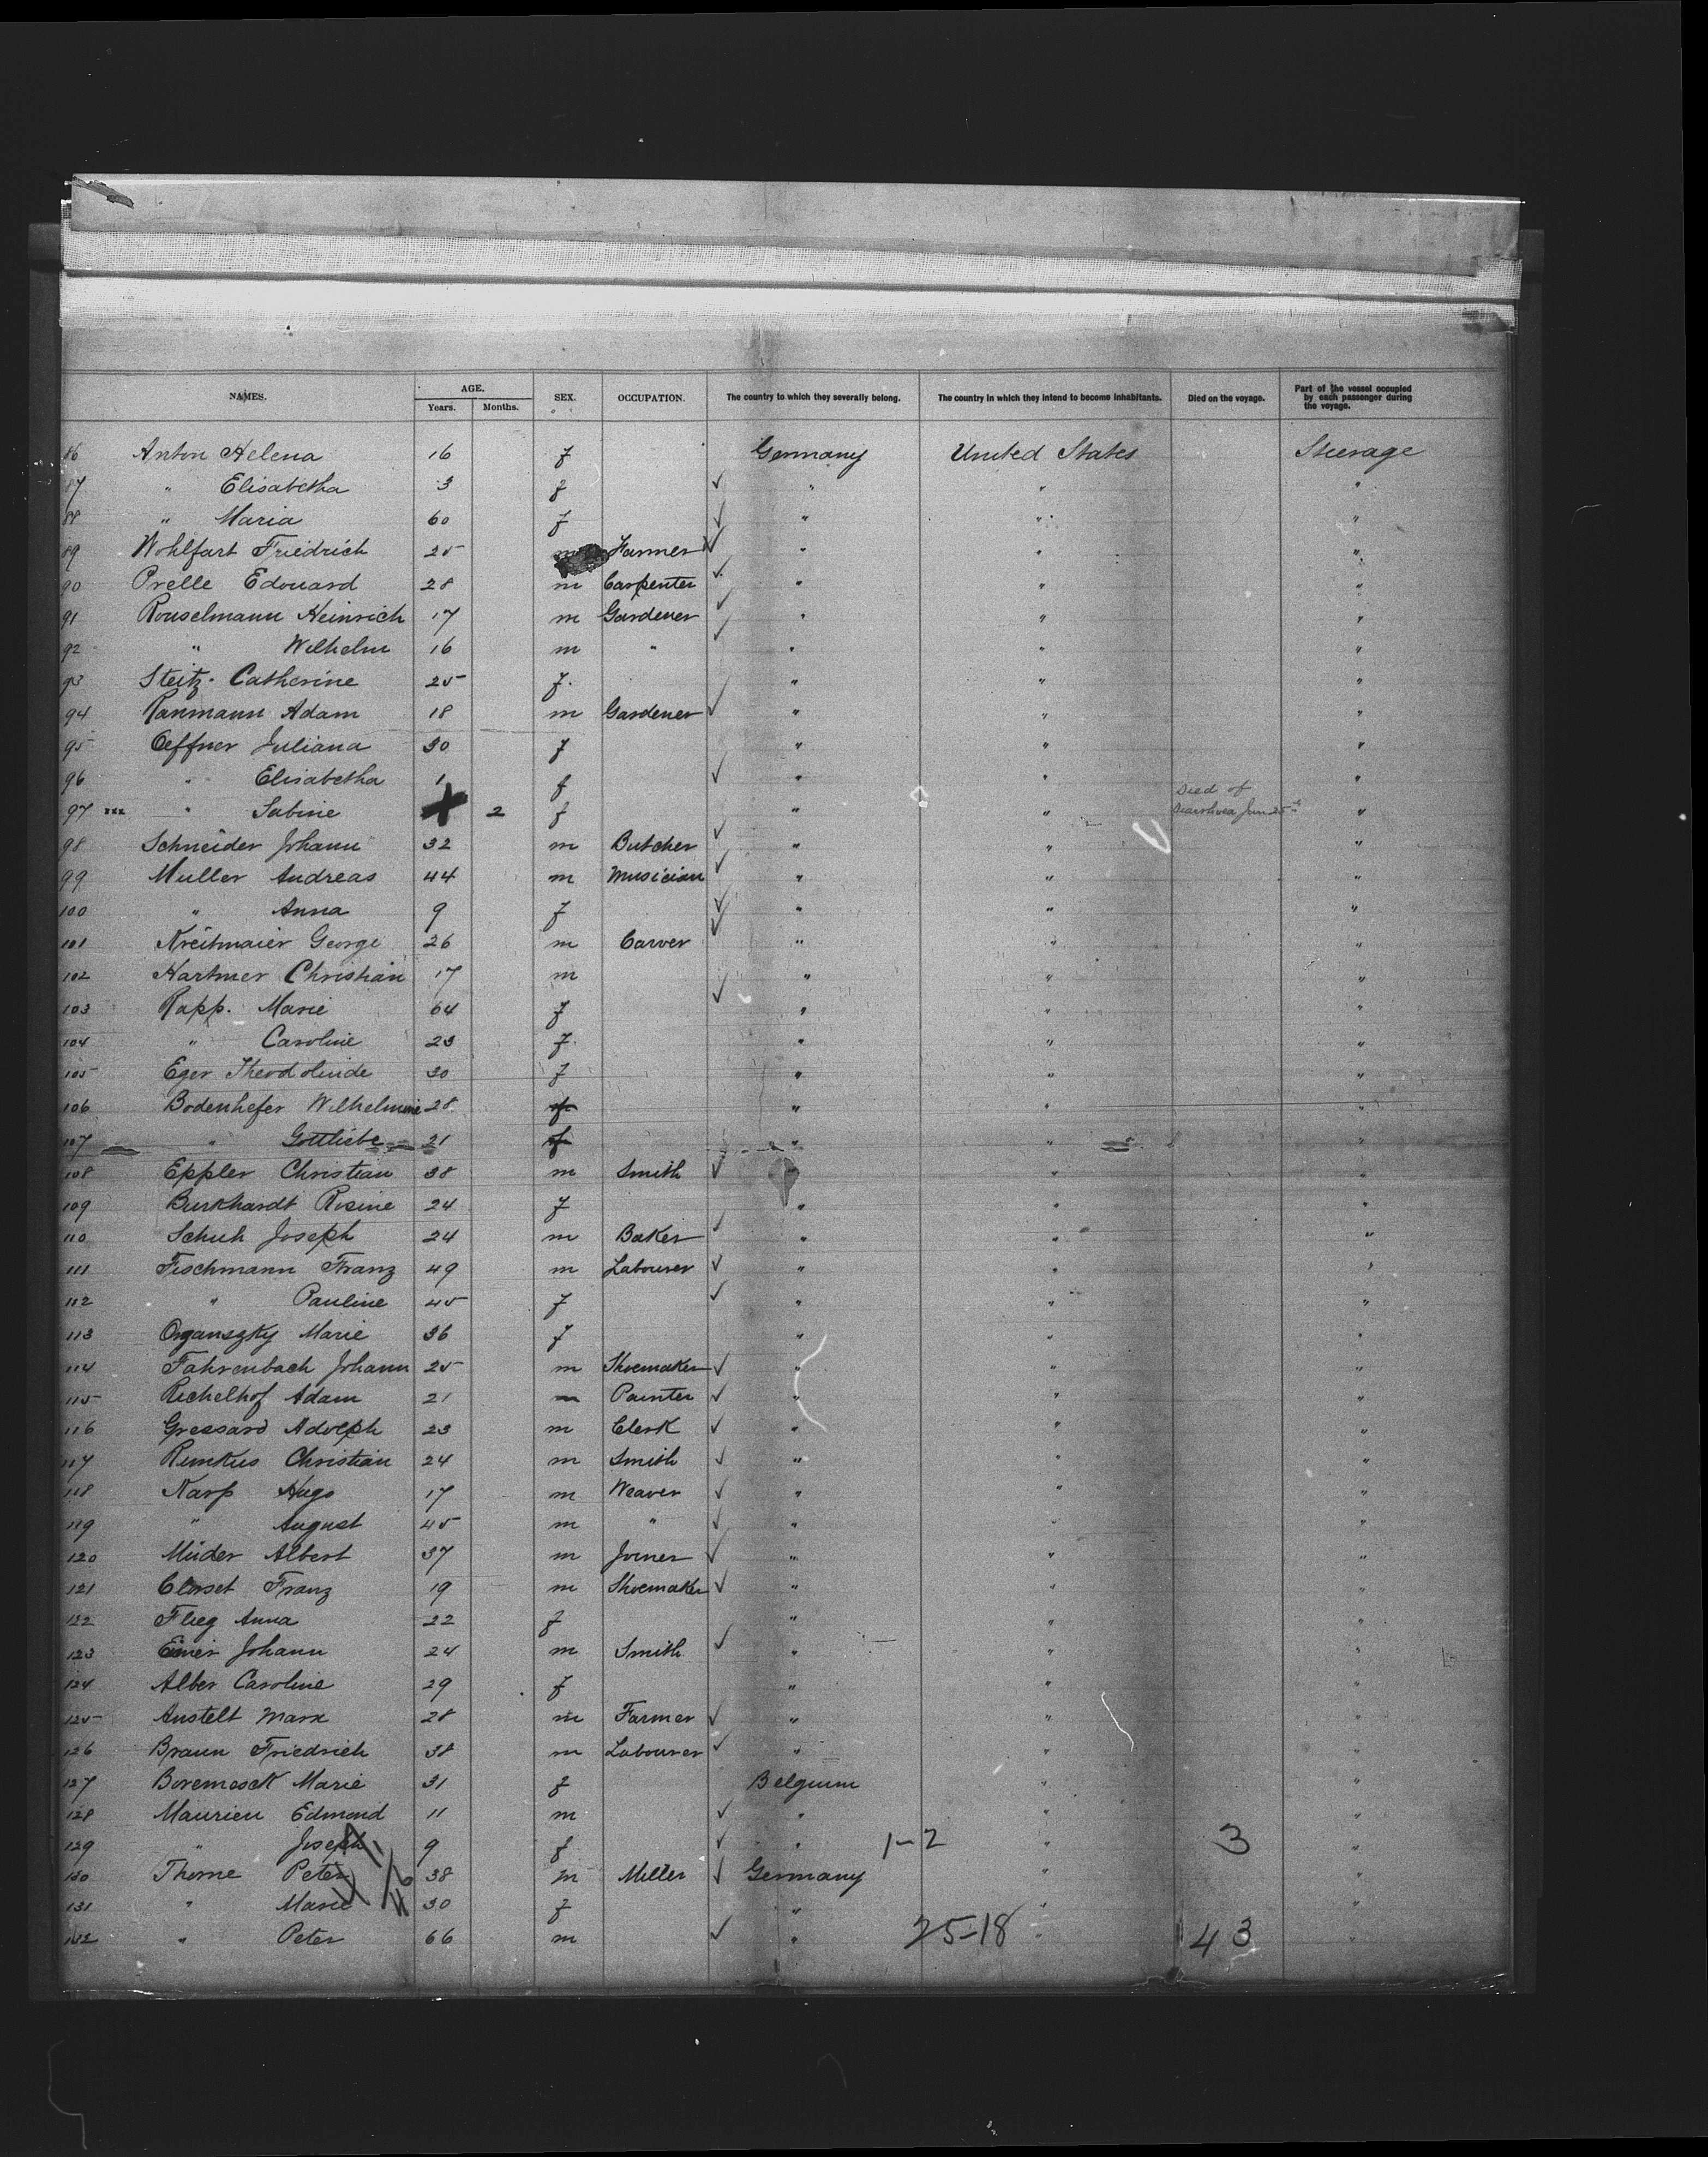 NAMES. AGE. Years. Months. SEX. OCCUPATION. The country to which they severally belong. The country in which they intend to become inhabitants. Died on the voyage. Part of the vessel occupied by each passenger during the voyage.
86 Anton Helena 16 f Germany United States Steerage
87 " Elisabetha 3 f " " "
88 " Maria 60 f " " "
89 Wohlfart Friedrich 25 m Farmer " " "
90 Prelle Edouard 28 m Carpenter " " "
91 Rouselmann Heinrich 17 m Gardener " " "
92 " Wilhelm 16 m " " " "
93 Steitz Catherine 25 f. " " "
94 Ranmann Adam 18 m Gardener " " "
95 Oeffner Juliana 30 f " " "
96 " Elisabetha 1 f " " "
97 xxx " Sabine 2 f " " Died of Diarrhoea Jun 25th "
98 Schneider Johann 32 m Butcher " " "
99 Muller Andreas 44 m Musician " " "
100 " Anna 9 f " " "
101 Kreitmaier George 26 m Carver " " "
102 Hartmer Christian 17 m " " "
103 Rapp. Marie 64 f " " "
104 " Caroline 23 f. " " "
105 Eger Theodolinde 30 f " " "
106 Bodenhefer Wilhelmine 28 f " " "
107 " Gottliebe 21 f " " "
108 Eppler Christian 38 m Smith " "
109 Burkhardt Rosine 24 f " " "
110 Schuh Joseph 24 m Baker " " "
111 Fischmann Franz 49 m Labourer " " "
112 " Pauline 45 f " " "
113 Organszky Marie 36 f " " "
114 Fahrenbach Johann 25 m Shoemaker " " "
115 Richelhof Adam 21 m Painter " " "
116 Gressard Adolph 23 m Clerk " " "
117 Rimkus Christian 24 m Smith " " "
118 Karp Hugo 17 m Weaver " " "
119 " August 45 m " " " "
120 Müder Albert 37 m Joiner " " "
121 Closset Franz 19 m Shoemaker " " "
122 Flieg Anna 22 f " " "
123 Johann 24 m Smith " " "
124 Alber Caroline 29 f " " "
125 Anstelt Marx 28 m Farmer " " "
126 Braun Friedrich 38 m Labourer " " "
127 Boremesck Marie 31 f Belgium " "
128 Maurieu Edmond 11 m " " "
129 " Joseph 9 f " 1-2 " 3 "
130 Thome Peter 38 m Miller Germany " "
131 " Marie 30 f " " "
132 " Peter 66 m " 25-18 " 43 "